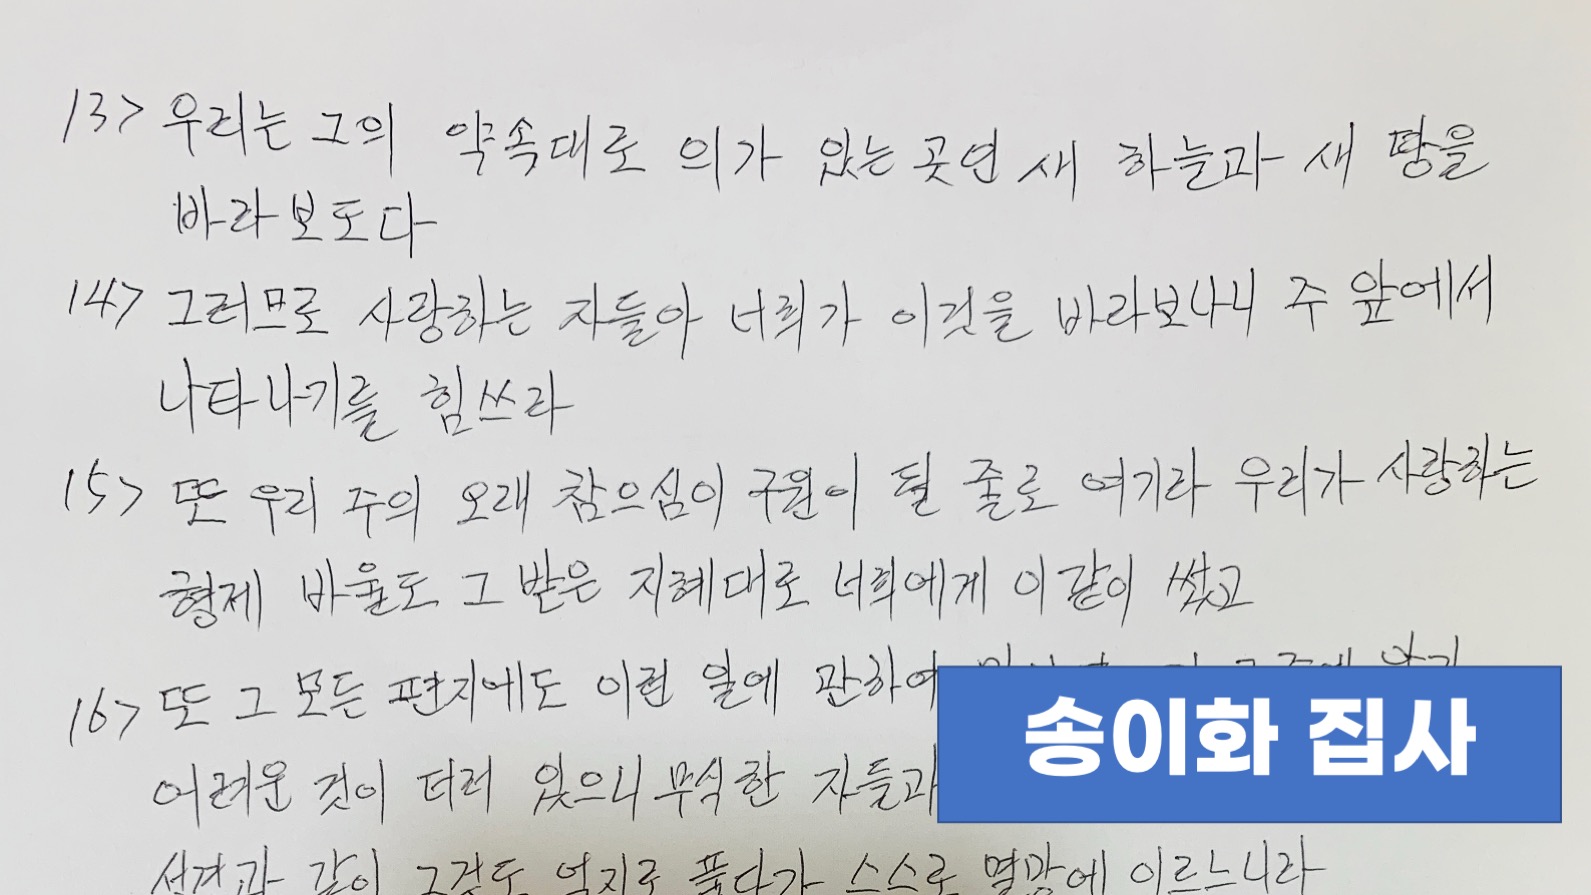 13> 우리는 그의 약속대로 의가 있는 곳인 새 하늘과 새 땅을
바라보도다
14> 그러므로 사랑하는 자들아 너희가 이것을 바라보나니 주 앞에서
나타나기를 힘쓰라
15> 또 우리 주의 오래 참으심이 구원이 될 줄로 여기라 우리가 사랑하는
형제 바울도 그 받은 지혜대로 너희에게 이같이 썼고
16> 또 그 모든 편지에도 이런 일에 관하여
어려운 것이 더러 있으니 무식한 자들과
성경과 같이 그것도 억지로 풀다가 스스로 멸망에 이르느니라
송이화 집사